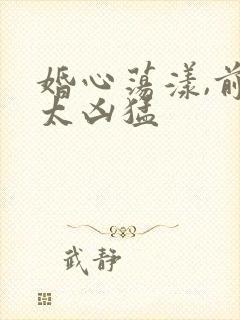 婚心荡漾,前
太凶猛
武静